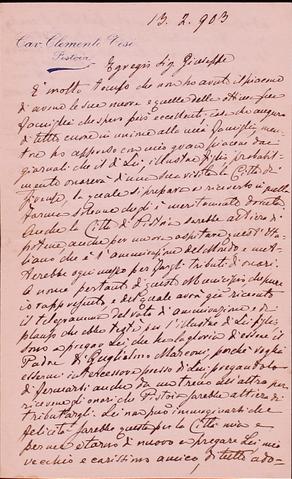 13. 2. 903
Cav. Clemente Rosi
Pistoia
Egregio Sig. Giuseppe
È molto tempo che non ho avuto il piacere
di avere le sue nuove e quelle della
famiglia che spero più eccellenti, così che auguro
di tutto cuore in unione alla mia famiglia, men
tre ho appreso con mio gran piacere dai
giornali che il di Lei illustre figlio probabil-
mente onorerà di una sua visita la Città di
Firenze, la quale si prepara a riceverlo in quella
forma solenne che gli è meritamente dovuta.
Anche la Città di Pistoia sarebbe altiera di
potere anche per un'ora ospitare quest'Ita-
liano che è l'ammirazione del Mondo e met-
terebbe ogni mezzo per fargli tributi di onori.
A nome pertanto di questo Municipio che pure
io rappresento e del quale avrà già ricevuto
il telegramma del voto di ammirazione e di
plauso che ebbe luogo per l'illustre di Lei figlio,
sono a pregare Lei che ha la gloria di essere il
Padre di Guglielmo Marconi, perché voglia
essermi intercessore presso di Lui pregandolo
di fermarsi anche da un treno all'altro per
ricevere gli onori che Pistoia sarebbe altiera di
tributargli. Lei non può immaginarsi che
felicità sarebbe questa per la Città mia e
permetta di nuovo a pregare Lei mio
vecchio e carissimo amico, di tutto ado-